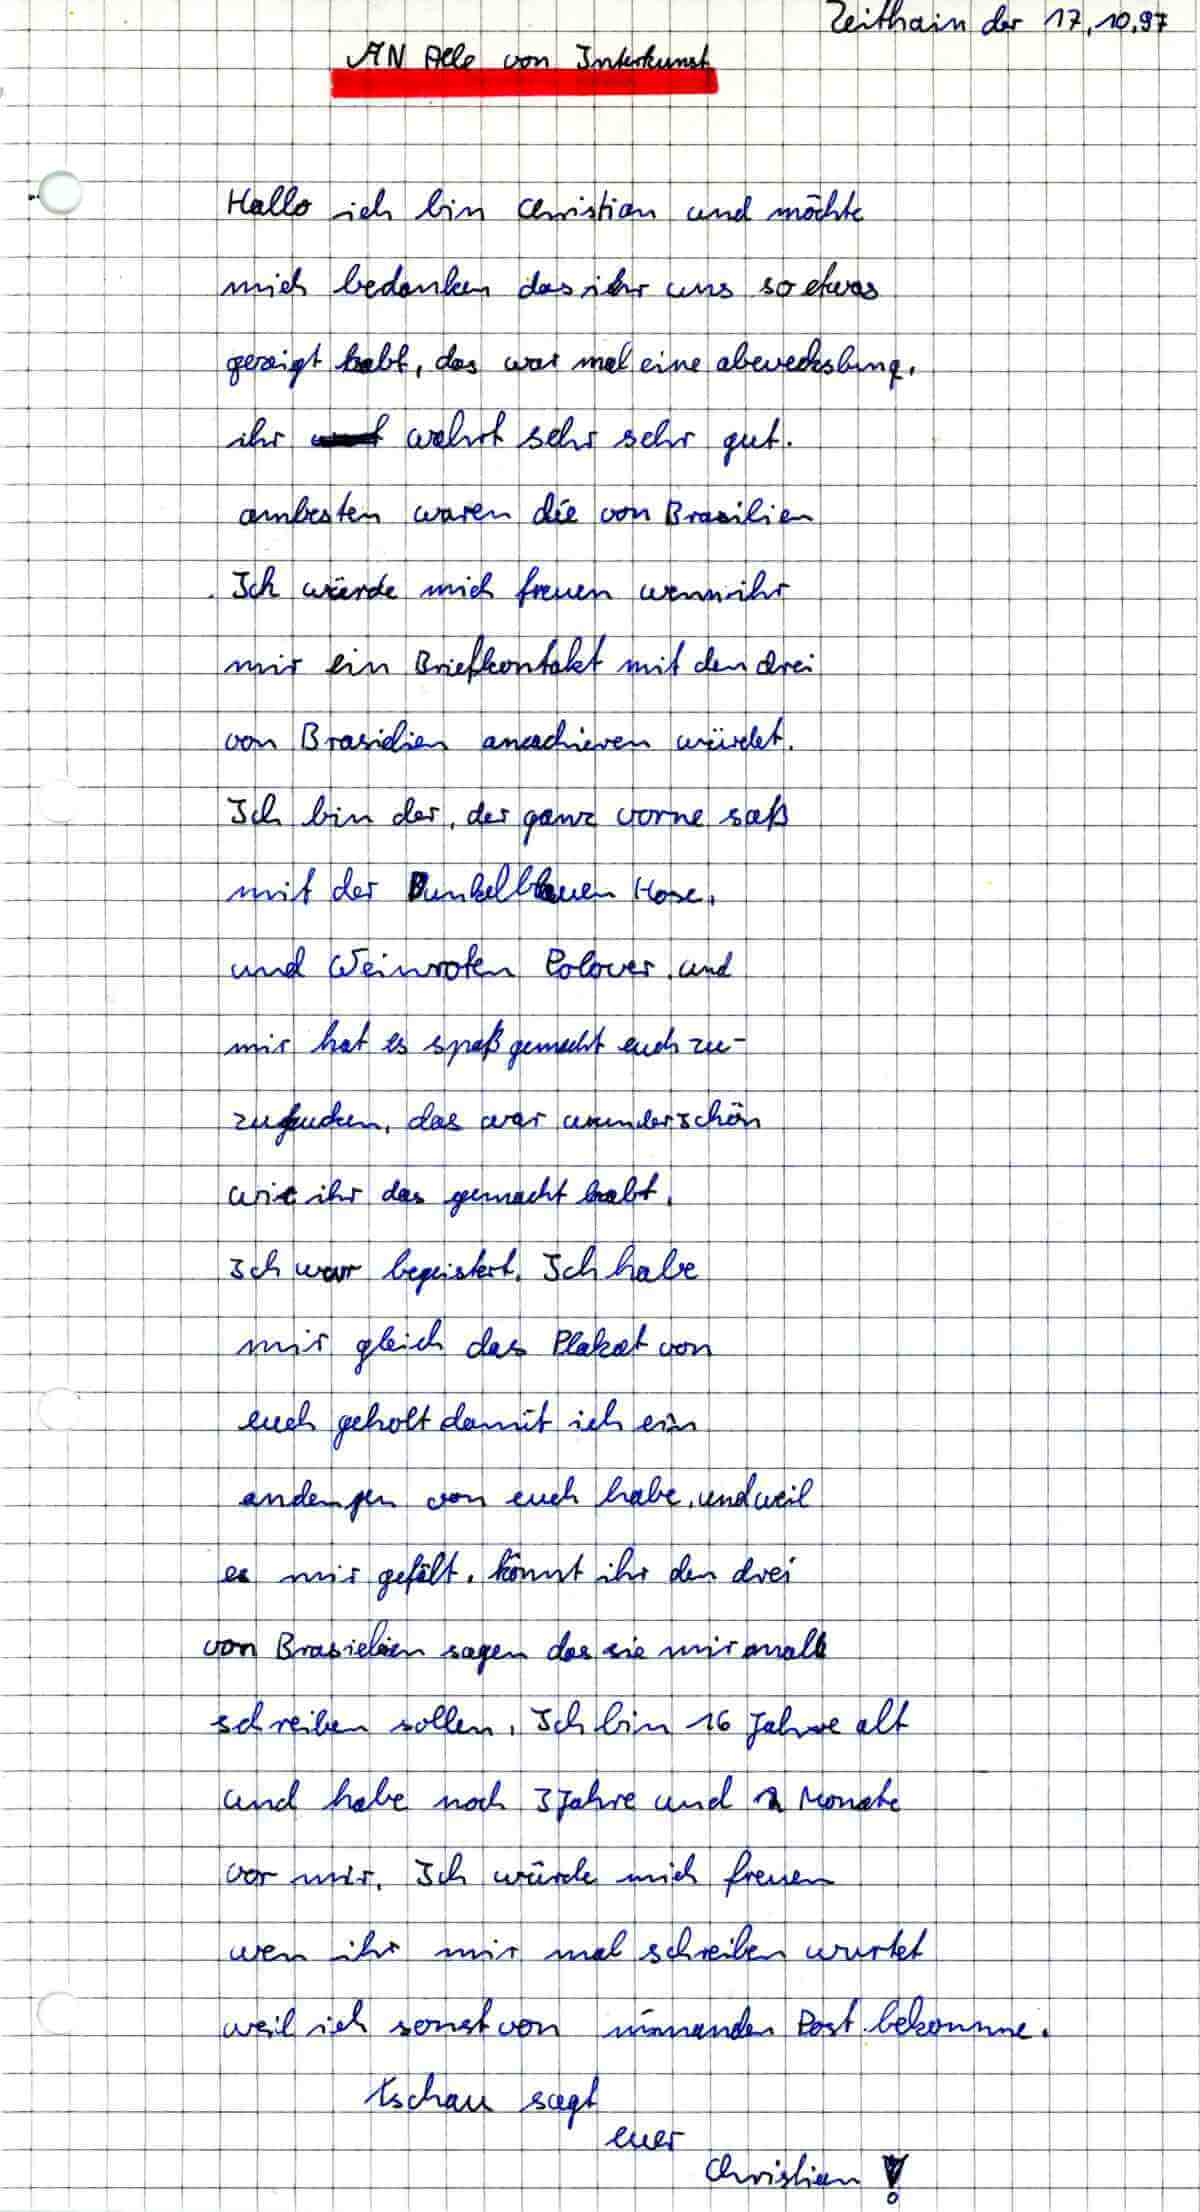 Zeithain der 17.10.97
AN Alle von Interkunst
Hallo ich bin Christian und möchte
mich bedanken das ihr uns so etwas
gezeigt habt, das war mal eine abeweckslung.
ihr wahrt sehr sehr gut.
ambesten waren die von Brasilien
Ich würde mich freuen wenn ihr
mir ein Briefkontakt mit den drei
von Brasidien würdet.
Ich bin der, der ganz vorne saß
mit der Dunkelblauen Hose,
und Weinroten Polover, und
mir hat es spaß gemacht euch zu-
zugucken, das war wunderschön
wie ihr das gemacht habt.
Ich war begeistert. Ich habe
mir gleich das Plakat von
euch geholt damit ich ein
andengen von euch habe, und weil
es mir gefält. könnt ihr den drei
von Brasielien sagen das sie mir mall
schreiben sollen. Ich bin 16 Jahre alt
und habe noch 3 Jahre und Monate
vor mir. Ich würde mich freuen
wen ihr mir mal schreiben wurtet
weil ich sonst von nimanden Post bekomme.
tschau sagt
euer
Christian !